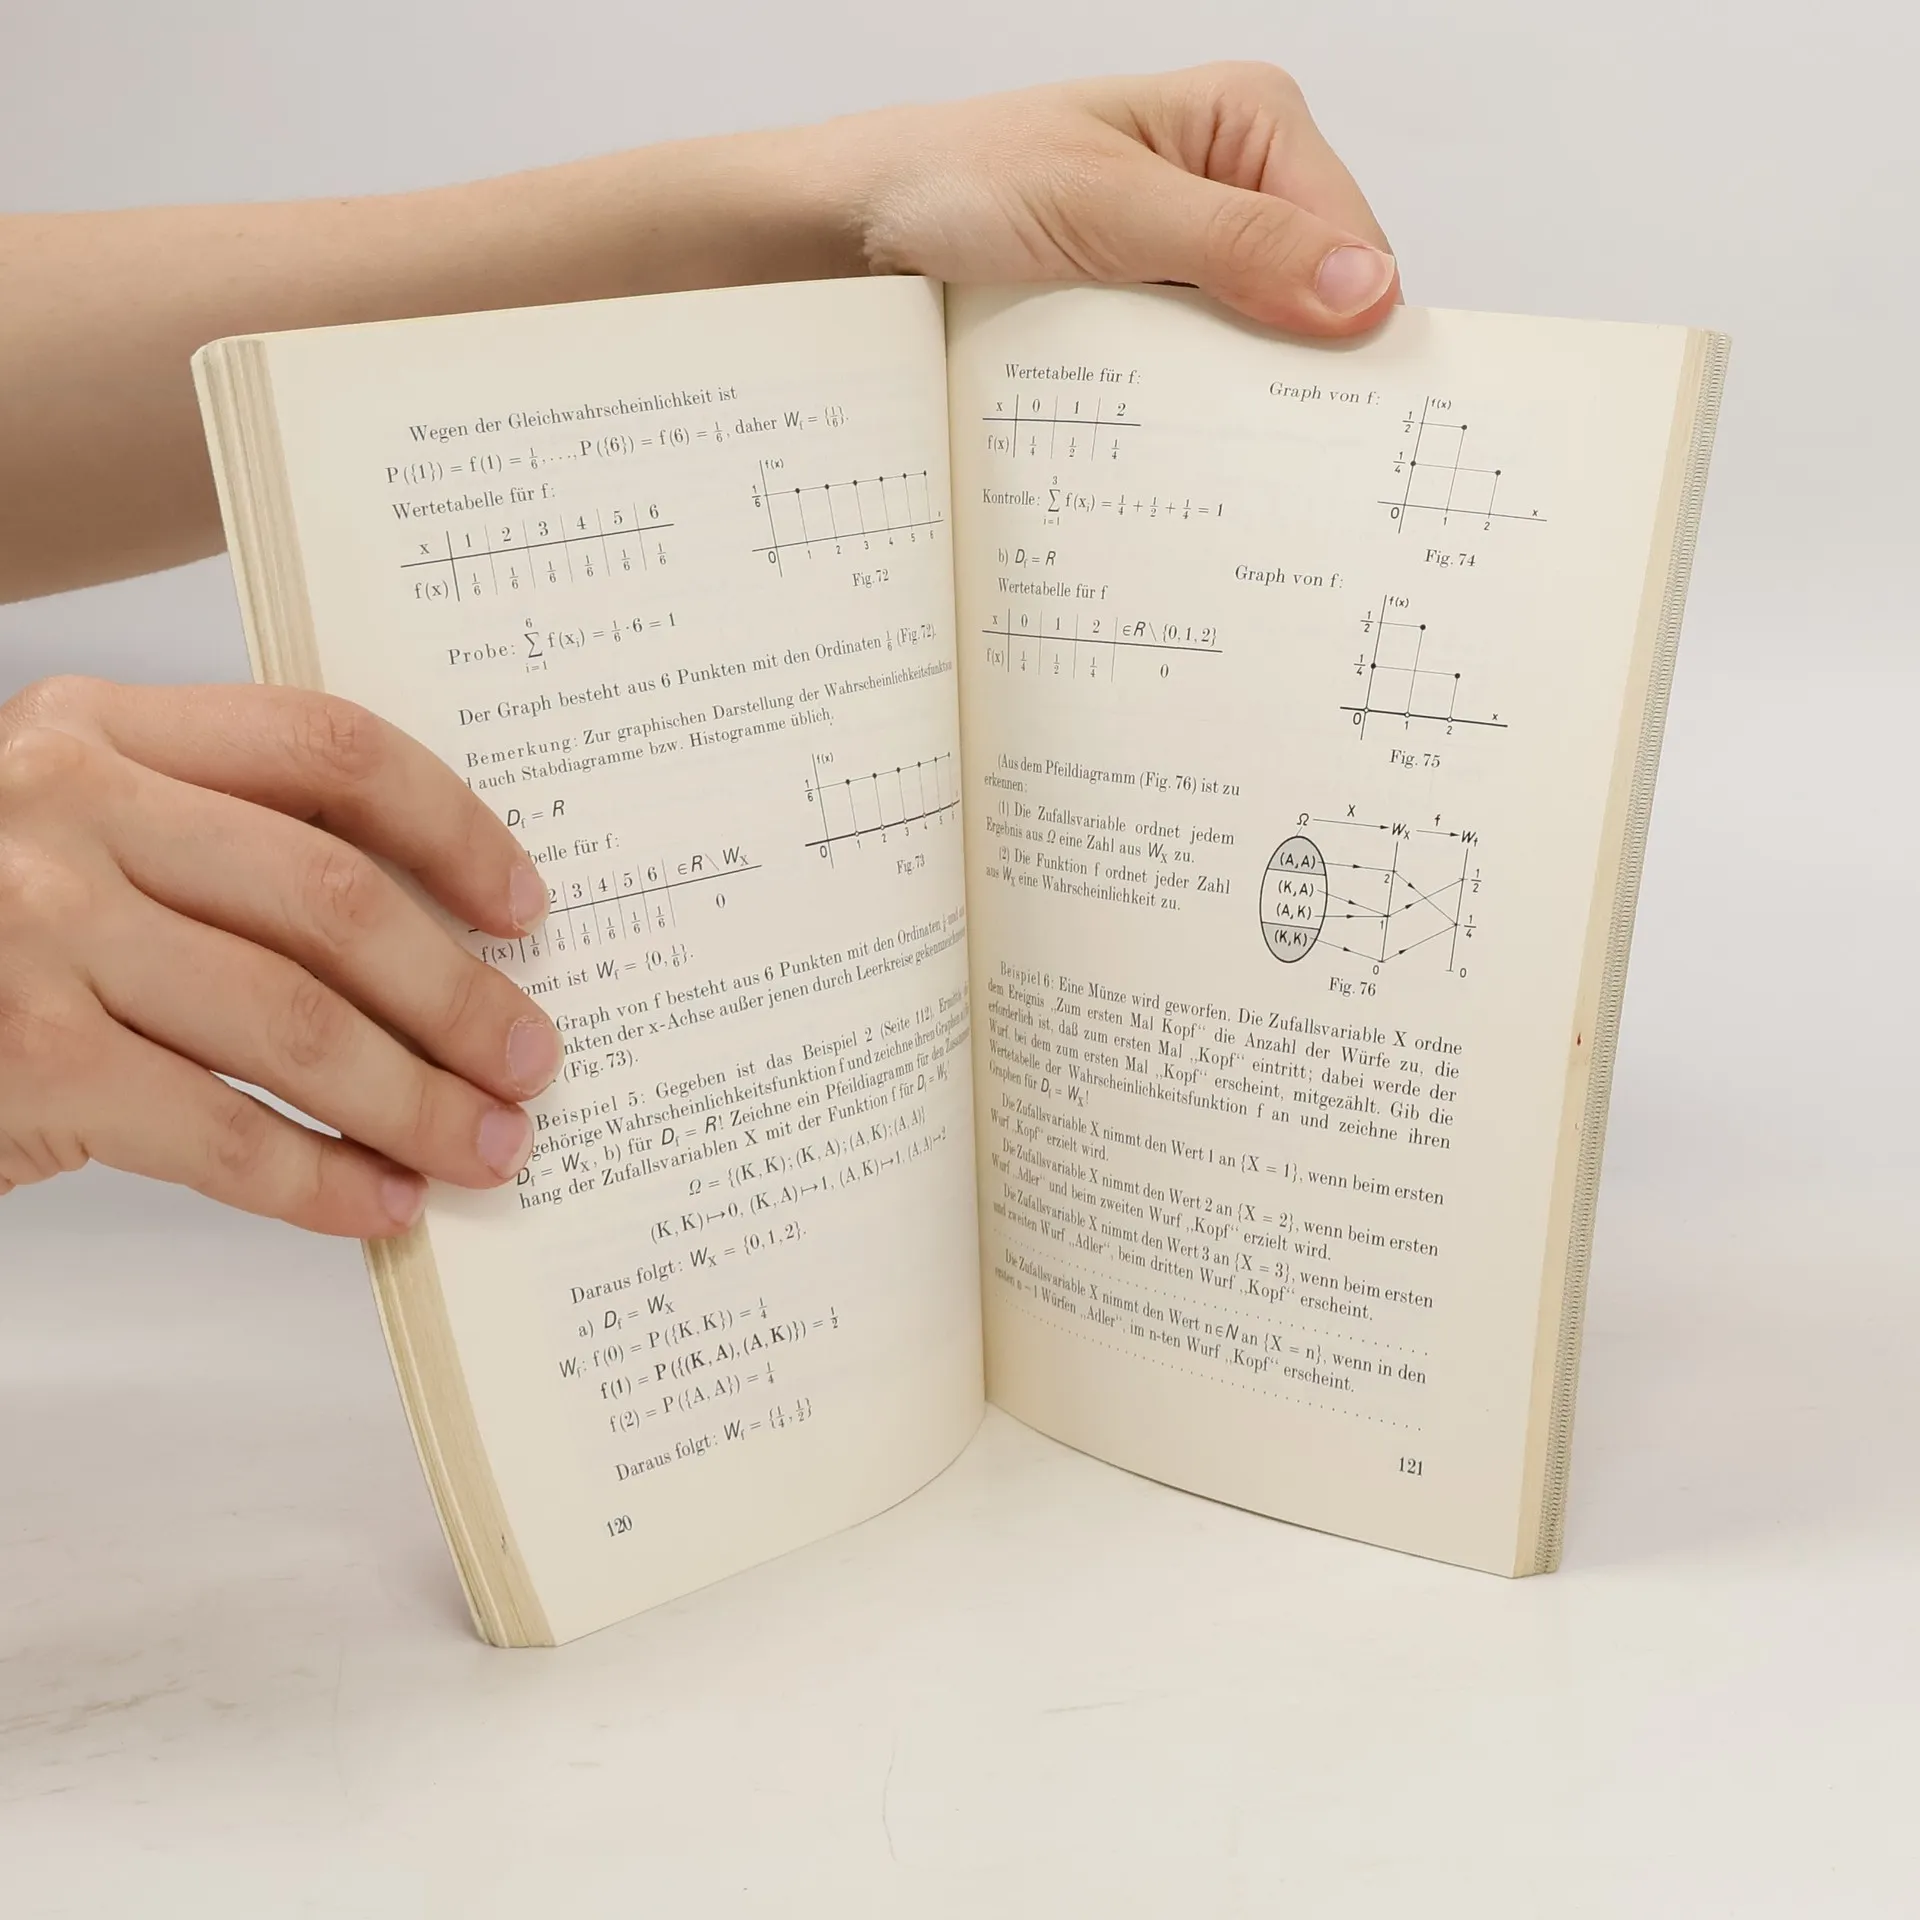 Wegen der Gleichwahrscheinlichkeit ist
P({1}) = f(1) = 1/6, ...., P({6}) = f(6) = 1/6, daher Wf = {1/6}.
Wertetabelle für f:
x | 1 | 2 | 3 | 4 | 5 | 6
f(x) | 1/6 | 1/6 | 1/6 | 1/6 | 1/6 | 1/6
f(x)
1/6
0 1 2 3 4 5 6
Fig. 72
Probe: 6 ∑ i=1 f(xi) = 1/6 · 6 = 1
Der Graph besteht aus 6 Punkten mit den Ordinaten 1/6 (Fig. 72).
Bemerkung: Zur graphischen Darstellung der Wahrscheinlichkeitsfunktion
auch Stabdiagramme bzw. Histogramme üblich.
Df = R
belle für f:
2 | 3 | 4 | 5 | 6 | ∈R \ WX
f(x) | 1/6 | 1/6 | 1/6 | 1/6 | 1/6 | 1/6 | 0
f(x)
1/6
0 1 2 3 4 5 6
Fig. 73
omit ist Wf = {0, 1/6}.
Graph von f besteht aus 6 Punkten mit den Ordinaten 1/6 und
nkten der x-Achse außer jenen durch Leerkreise
(Fig. 73).
Beispiel 5: Gegeben ist das Beispiel 2 (Seite 112).
gehörige Wahrscheinlichkeitsfunktion f und zeichne ihren Graphen
Df = WX, b) für Df = R! Zeichne ein Pfeildiagramm für den
hang der Zufallsvariablen X mit der Funktion f für Df = WX!
Ω = {(K, K); (K, A); (A, K); (A, A)}
(K, K)↦0, (K, A)↦1, (A, K)↦1, (A, A)↦2
Daraus folgt: WX = {0, 1, 2}.
a) Df = WX
Wf: f(0) = P({K, K}) = 1/4
f(1) = P({(K, A), (A, K)}) = 1/2
f(2) = P({A, A}) = 1/4
Daraus folgt: Wf = {1/4, 1/2}
120
Wertetabelle für f:
x | 0 | 1 | 2
f(x) | 1/4 | 1/2 | 1/4
Graph von f:
f(x)
1/2
1/4
0 1 2 x
Fig. 74
Kontrolle: 3 ∑ i=1 f(xi) = 1/4 + 1/2 + 1/4 = 1
b) Df = R
Wertetabelle für f
x | 0 | 1 | 2 | ∈R \ {0, 1, 2}
f(x) | 1/4 | 1/2 | 1/4 | 0
Graph von f:
f(x)
1/2
1/4
0 1 2 x
Fig. 75
(Aus dem Pfeildiagramm (Fig. 76) ist zu
erkennen:
(1) Die Zufallsvariable ordnet jedem
Ergebnis aus Ω eine Zahl aus WX zu.
(2) Die Funktion f ordnet jeder Zahl
aus WX eine Wahrscheinlichkeit zu.
Ω X WX f Wf
(A,A)
(K,A)
(A,K)
(K,K)
2
1
0
1/2
1/4
0
Fig. 76
Beispiel 6: Eine Münze wird geworfen. Die Zufallsvariable X ordne
dem Ereignis „Zum ersten Mal Kopf“ die Anzahl der Würfe zu, die
erforderlich ist, daß zum ersten Mal „Kopf“ eintritt; dabei werde der
Wurf, bei dem zum ersten Mal „Kopf“ erscheint, mitgezählt. Gib die
Wertetabelle der Wahrscheinlichkeitsfunktion f an und zeichne ihren
Graphen für Df = WX!
Die Zufallsvariable X nimmt den Wert 1 an {X = 1}, wenn beim ersten
Wurf „Kopf“ erzielt wird.
Die Zufallsvariable X nimmt den Wert 2 an {X = 2}, wenn beim ersten
Wurf „Adler“ und beim zweiten Wurf „Kopf“ erzielt wird.
Die Zufallsvariable X nimmt den Wert 3 an {X = 3}, wenn beim ersten
und zweiten Wurf „Adler“, beim dritten Wurf „Kopf“ erscheint.
Die Zufallsvariable X nimmt den Wert n∈N an {X = n}, wenn in den
ersten n − 1 Würfen „Adler“, im n-ten Wurf „Kopf“ erscheint.
121